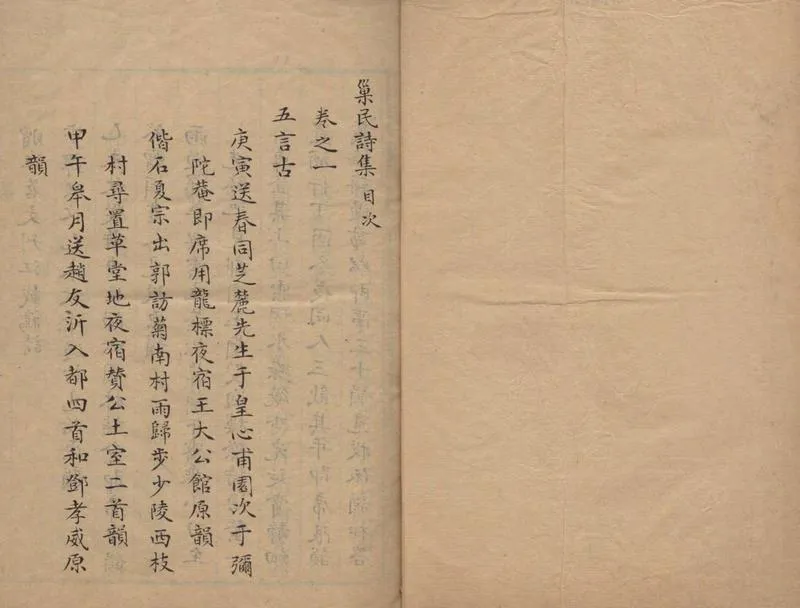 巢民詩集目次
卷之一
五言古
庚寅送春同芝麓先生于皇心甫園次于彌
陀菴即席用龍標夜宿王大公館原韻
偕石夏宗出郭訪菊南村雨歸步少陵西枝
村尋置草堂地夜宿贊公土室二首韻
甲午皋月送趙友沂入都四首和鄧孝威原
韻